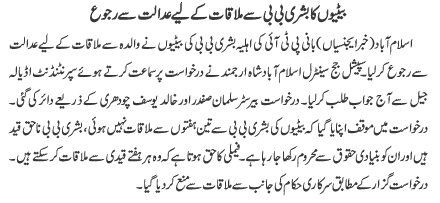 بیٹیوں کا بشریٰ بی بی سے ملاقات کے لیے عدالت سے رجوع
اسلام آباد (خبر ایجنسیاں) بانی پی ٹی آئی کی اہلیہ بشریٰ بی بی کی بیٹیوں نے والدہ سے ملاقات کے لیے عدالت
سے رجوع کر لیا۔ سپیشل جج سینٹرل اسلام آباد شاہ ارجمند نے درخواست پر سماعت کرتے ہوئے سپرنٹنڈنٹ اڈیالہ
جیل سے آج جواب طلب کر لیا۔ درخواست بیرسٹر سلمان صفدر اور خالد یوسف چودھری کے ذریعے دائر کی گئی۔
درخواست میں موقف اپنایا گیا کہ بیٹیوں کی بشریٰ بی بی سے تین ہفتوں سے ملاقات نہیں ہوئی، بشریٰ بی بی ناحق قید
ہیں اور ان کو بنیادی حقوق سے محروم رکھا جا رہا ہے۔ فیملی کا حق ہوتا ہے کہ وہ ہر ہفتے قیدی سے ملاقات کر سکتے ہیں۔
درخواست گزار کے مطابق سرکاری حکام کی جانب سے ملاقات سے منع کر دیا گیا۔